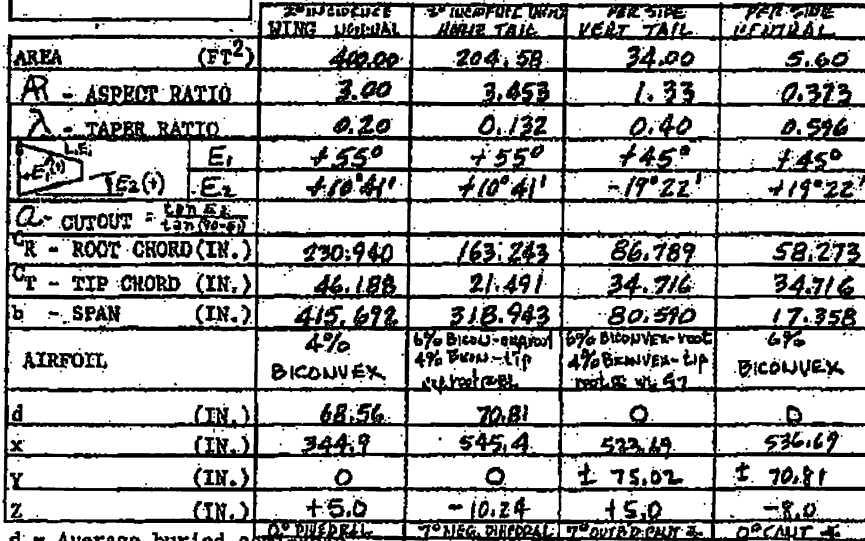 2° INCIDENCE WING NORMAL 2° INCIDENCE HORIZ TAIL PER SIDE VERT TAIL PER SIDE VENTRAL
AREA (FT²) 400.00 204.58 34.00 5.60
AR - ASPECT RATIO 3.00 3.453 1.33 0.373
λ - TAPER RATIO 0.20 0.132 0.40 0.596
E₁ +55° +55° +45° +45°
E₂(+) E₂ +10°41' +10°41' -19°22' +19°22'
a - CUTOUT = tan E₂ / tan(90-E₁)
C_R - ROOT CHORD (IN.) 230.940 163.243 86.789 58.273
C_T - TIP CHORD (IN.) 46.188 21.491 34.716 34.716
b - SPAN (IN.) 415.692 318.943 80.590 17.358
AIRFOIL 4% BICONVEX 6% BICON- 4% BICON-tip 6% BICONVEX-root 4% BICONVEX-tip 6% BICONVEX
d (IN.) 68.56 70.81 0 0
x (IN.) 344.9 545.4 523.69 536.69
Y (IN.) 0 0 ± 75.02 ± 70.81
Z (IN.) +5.0 -10.24 +5.0 -8.0
d = Average buried 0° DIHEDRAL 7° NEG. DIHEDRAL 7° OUTB'D CANT 0° CANT